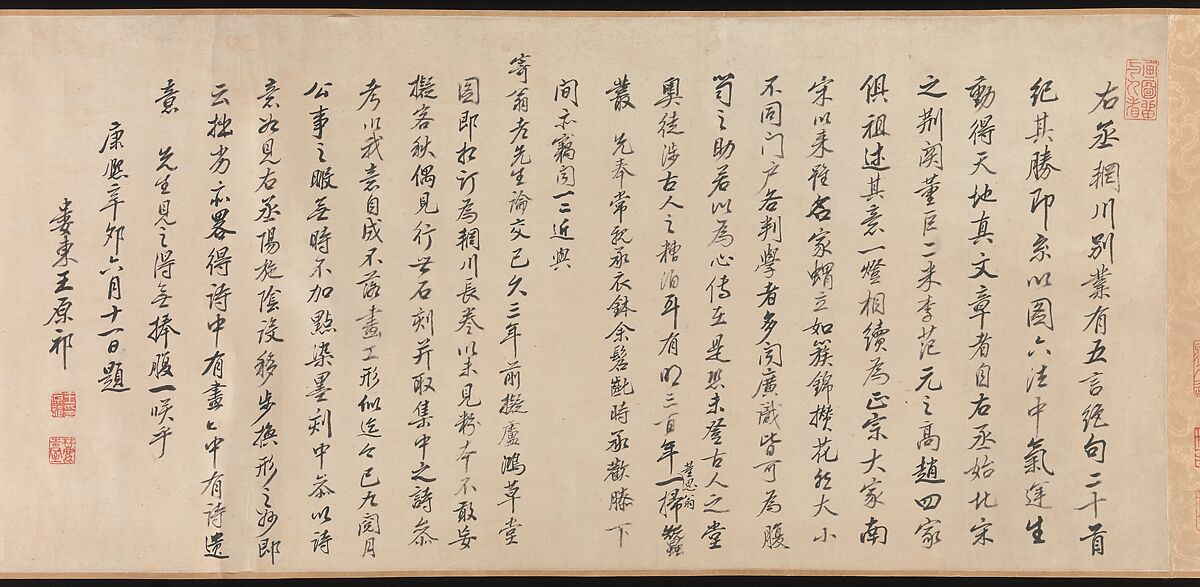 畫圖留與人看
右丞輞川別業有五言絕句二十首
紀其勝即系以圖六法中氣運生
動得天地真文章者自右丞始北宋
之荊關董巨二米李范元之高趙四家
俱祖述其意一燈相續為正宗大家南
宋以來雖名家蝟立如簇錦攢花然大小
不同門戶各判學者多聞廣識皆可為腹
笥之助若以為心傳在是恐未登古人之堂
奧徒涉古人之糟泊耳有明三百年董思翁一掃蠶
叢 先奉常親承衣鉢余髫齔時承歡膝下
間亦竊聞一二近與
寄翁老先生論交已久三年前擬盧鴻草堂
圖即相訂為輞川長卷以未見粉本不敢妄
擬客秋偶見行世石刻并取集中之詩參
考以我意自成不落畫工形似迄今已九閱月
公事之暇無時不加點染墨刻中參以詩
意如見右丞陽施陰設移步換形之妙即
云拙劣亦畧得詩中有畫畫中有詩遺
意 先生見之得無捧腹一咲乎
康熙辛卯六月十一日題
婁東王原祁